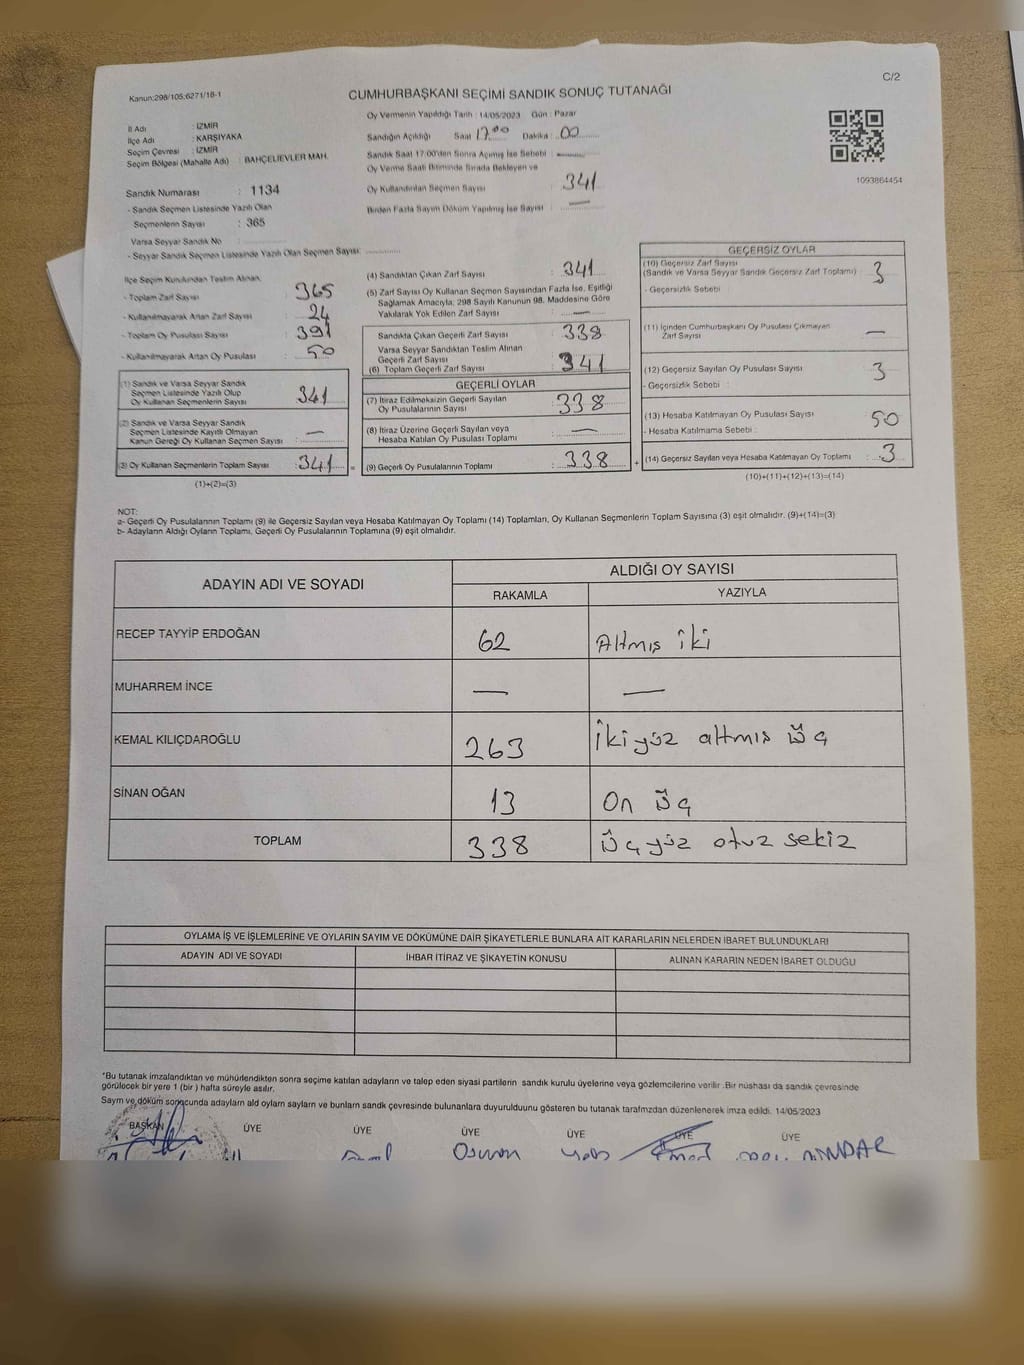 C/2
Kanun:298/105,6271/18-1
CUMHURBAŞKANI SEÇİMİ SANDIK SONUÇ TUTANAĞI
Oy Vermenin Yapıldığı Tarih : 14/05/2023 Gün : Pazar
İl Adı : İZMİR
İlçe Adı : KARŞIYAKA
Seçim Çevresi : İZMİR
Seçim Bölgesi (Mahalle Adı) : BAHÇELİEVLER MAH.
Sandığın Açıldığı Saat 17.00 Dakika : 00
Sandık Saat 17:00'den Sonra Açılmış İse Sebebi : —
Oy Verme Saati Bitiminde Sırada Bekleyen ve
Oy Kullandırılan Seçmen Sayısı 341
Birden Fazla Sayım Döküm Yapılmış İse Sayısı : —
1093864454
Sandık Numarası : 1134
- Sandık Seçmen Listesinde Yazılı Olan
Seçmenlerin Sayısı : 365
Varsa Seyyar Sandık No :
- Seyyar Sandık Seçmen Listesinde Yazılı Olan Seçmen Sayısı:
İlçe Seçim Kurulundan Teslim Alınan:
- Toplam Zarf Sayısı : 365
- Kullanılmayarak Artan Zarf Sayısı : 24
- Toplam Oy Pusulası Sayısı : 391
- Kullanılmayarak Artan Oy Pusulası : 50
(1) Sandık ve Varsa Seyyar Sandık
Seçmen Listesinde Yazılı Olup
Oy Kullanan Seçmenlerin Sayısı : 341
(2) Sandık ve Varsa Seyyar Sandık
Seçmen Listesinde Kayıtlı Olmayan
Kanun Gereği Oy Kullanan Seçmen Sayısı : —
(3) Oy Kullanan Seçmenlerin Toplam Sayısı : 341 =
(1)+(2)=(3)
(4) Sandıktan Çıkan Zarf Sayısı : 341
(5) Zarf Sayısı Oy Kullanan Seçmen Sayısından Fazla İse, Eşitliği
Sağlamak Amacıyla, 298 Sayılı Kanunun 98. Maddesine Göre
Yakılarak Yok Edilen Zarf Sayısı : —
Sandıkta Çıkan Geçerli Zarf Sayısı : 338
Varsa Seyyar Sandıktan Teslim Alınan
Geçerli Zarf Sayısı :
(6) Toplam Geçerli Zarf Sayısı : 341
GEÇERLİ OYLAR
(7) İtiraz Edilmeksizin Geçerli Sayılan
Oy Pusulalarının Sayısı : 338
(8) İtiraz Üzerine Geçerli Sayılan veya
Hesaba Katılan Oy Pusulası Toplamı : —
(9) Geçerli Oy Pusulalarının Toplamı : 338 +
GEÇERSİZ OYLAR
(10) Geçersiz Zarf Sayısı
(Sandık ve Varsa Seyyar Sandık Geçersiz Zarf Toplamı) : 3
- Geçersizlik Sebebi :
(11) İçinden Cumhurbaşkanı Oy Pusulası Çıkmayan
Zarf Sayısı : —
(12) Geçersiz Sayılan Oy Pusulası Sayısı : 3
- Geçersizlik Sebebi :
(13) Hesaba Katılmayan Oy Pusulası Sayısı : 50
- Hesaba Katılmama Sebebi :
(14) Geçersiz Sayılan veya Hesaba Katılmayan Oy Toplamı : 3
(10)+(11)+(12)+(13)=(14)
NOT:
a- Geçerli Oy Pusulalarının Toplamı (9) ile Geçersiz Sayılan veya Hesaba Katılmayan Oy Toplamı (14) Toplamları, Oy Kullanan Seçmenlerin Toplam Sayısına (3) eşit olmalıdır. (9)+(14)=(3)
b- Adayların Aldığı Oyların Toplamı, Geçerli Oy Pusulalarının Toplamına (9) eşit olmalıdır.
ADAYIN ADI VE SOYADI ALDIĞI OY SAYISI
RAKAMLA YAZIYLA
RECEP TAYYİP ERDOĞAN 62 Altmış iki
MUHARREM İNCE — —
KEMAL KILIÇDAROĞLU 263 İkiyüz altmış üç
SİNAN OĞAN 13 On üç
TOPLAM 338 Üçyüz otuz sekiz
OYLAMA İŞ VE İŞLEMLERİNE VE OYLARIN SAYIM VE DÖKÜMÜNE DAİR ŞİKAYETLERLE BUNLARA AİT KARARLARIN NELERDEN İBARET BULUNDUKLARI
ADAYIN ADI VE SOYADI İHBAR İTİRAZ VE ŞİKAYETİN KONUSU ALINAN KARARIN NEDEN İBARET OLDUĞU
*Bu tutanak imzalandıktan ve mühürlendikten sonra seçime katılan adayların ve talep eden siyasi partilerin sandık kurulu üyelerine veya gözlemcilerine verilir .Bir nüshası da sandık çevresinde
görülecek bir yere 1 (bir ) hafta süreyle asılır.
Sayım ve döküm sonucunda adayların ald oyların sayların ve bunların sandk çevresinde bulunanlara duyurulduunu gösteren bu tutanak tarafmzdan düzenlenerek imza edildi. 14/05/2023
BAŞKAN ÜYE ÜYE ÜYE ÜYE ÜYE ÜYE
Osman